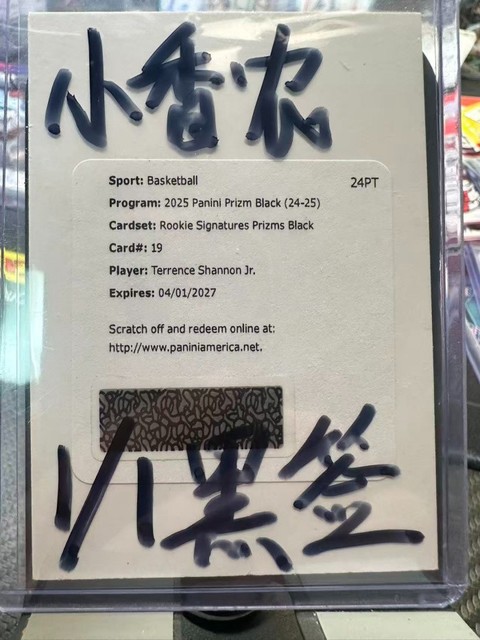 小香农
Sport: Basketball
24PT
Program: 2025 Panini Prizm Black (24-25)
Cardset: Rookie Signatures Prizms Black
Card#: 19
Player: Terrence Shannon Jr.
Expires: 04/01/2027
Scratch off and redeem online at:
http://www.paniniamerica.net.
1/1黑签